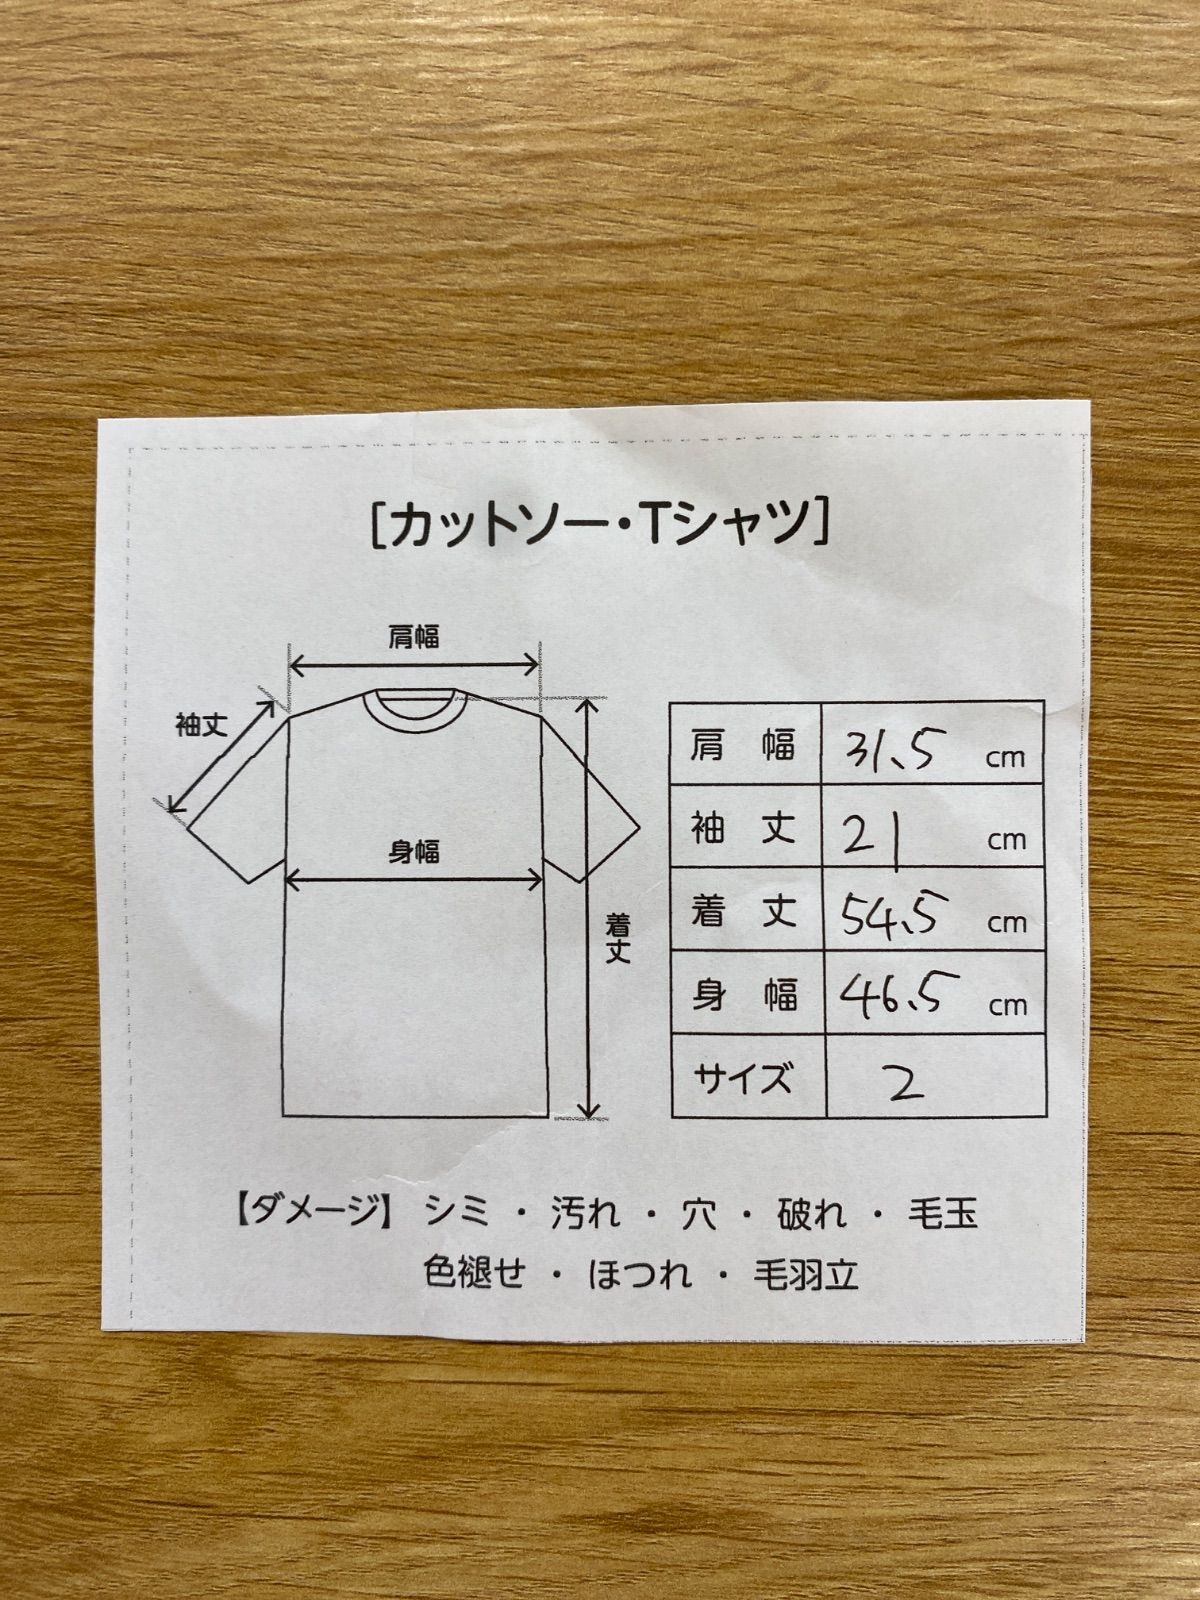 [カットソー・Tシャツ]
肩幅
袖丈
身幅
着丈
肩幅 31.5 cm
袖丈 21 cm
着丈 54.5 cm
身幅 46.5 cm
サイズ 2
【ダメージ】 シミ ・ 汚れ ・ 穴 ・ 破れ ・ 毛玉
色褪せ ・ ほつれ ・ 毛羽立